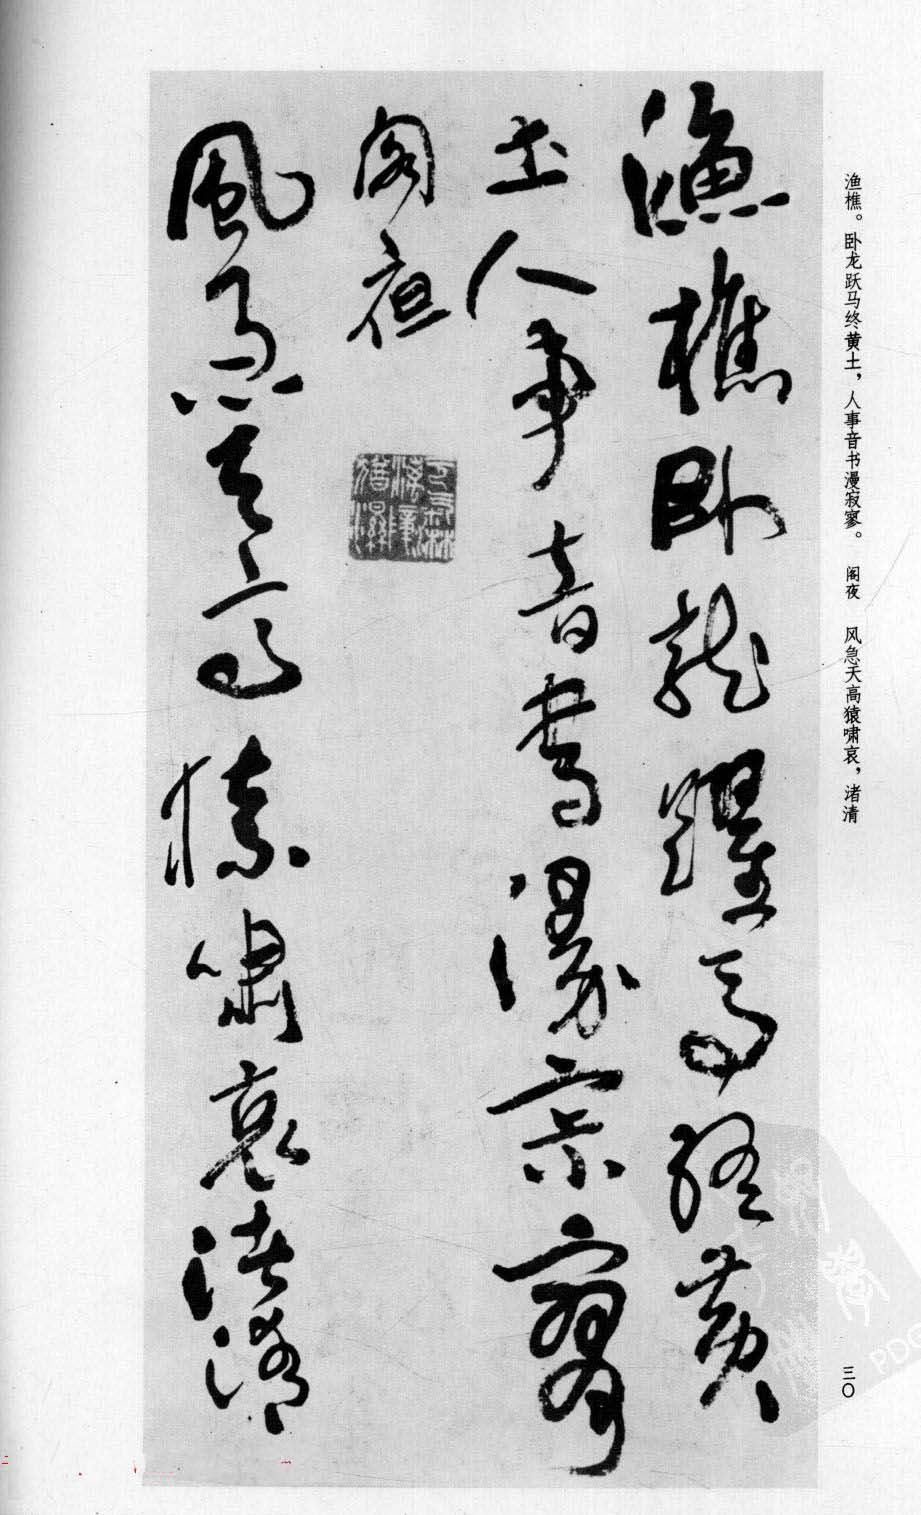 渔樵。卧龙跃马终黄土，人事音书漫寂寥。　阁夜　风急天高猿啸哀，渚清
漁樵卧龍躍馬終黄
土人事音書漫寂寥
閣夜
風急天高猿嘯哀渚清
三〇